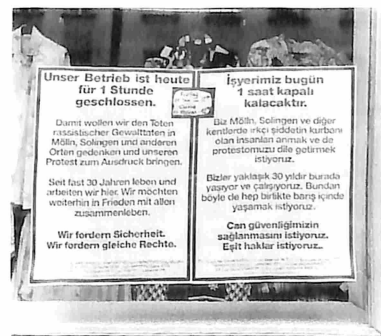 Unser Betrieb ist heute
für 1 Stunde
geschlossen.
Damit wollen wir den Toten
rassistischer Gewalttaten in
Mölln, Solingen und anderen
Orten gedenken und unseren
Protest zum Ausdruck bringen.
Seit fast 30 Jahren leben und
arbeiten wir hier. Wir möchten
weiterhin in Frieden mit allen
zusammenleben.
Wir fordern Sicherheit.
Wir fordern gleiche Rechte.
İşyerimiz bugün
1 saat kapalı
kalacaktır.
Biz Mölln, Solingen ve diğer
kentlerde ırkçı şiddetin kurbanı
olan insanları anmak ve de
protestomuzu dile getirmek
istiyoruz.
Bizler yaklaşık 30 yıldır burada
yaşıyor ve çalışıyoruz. Bundan
böyle de hep birlikte barış içinde
yaşamak istiyoruz.
Can güvenliğimizin
sağlanmasını istiyoruz.
Eşit haklar istiyoruz.